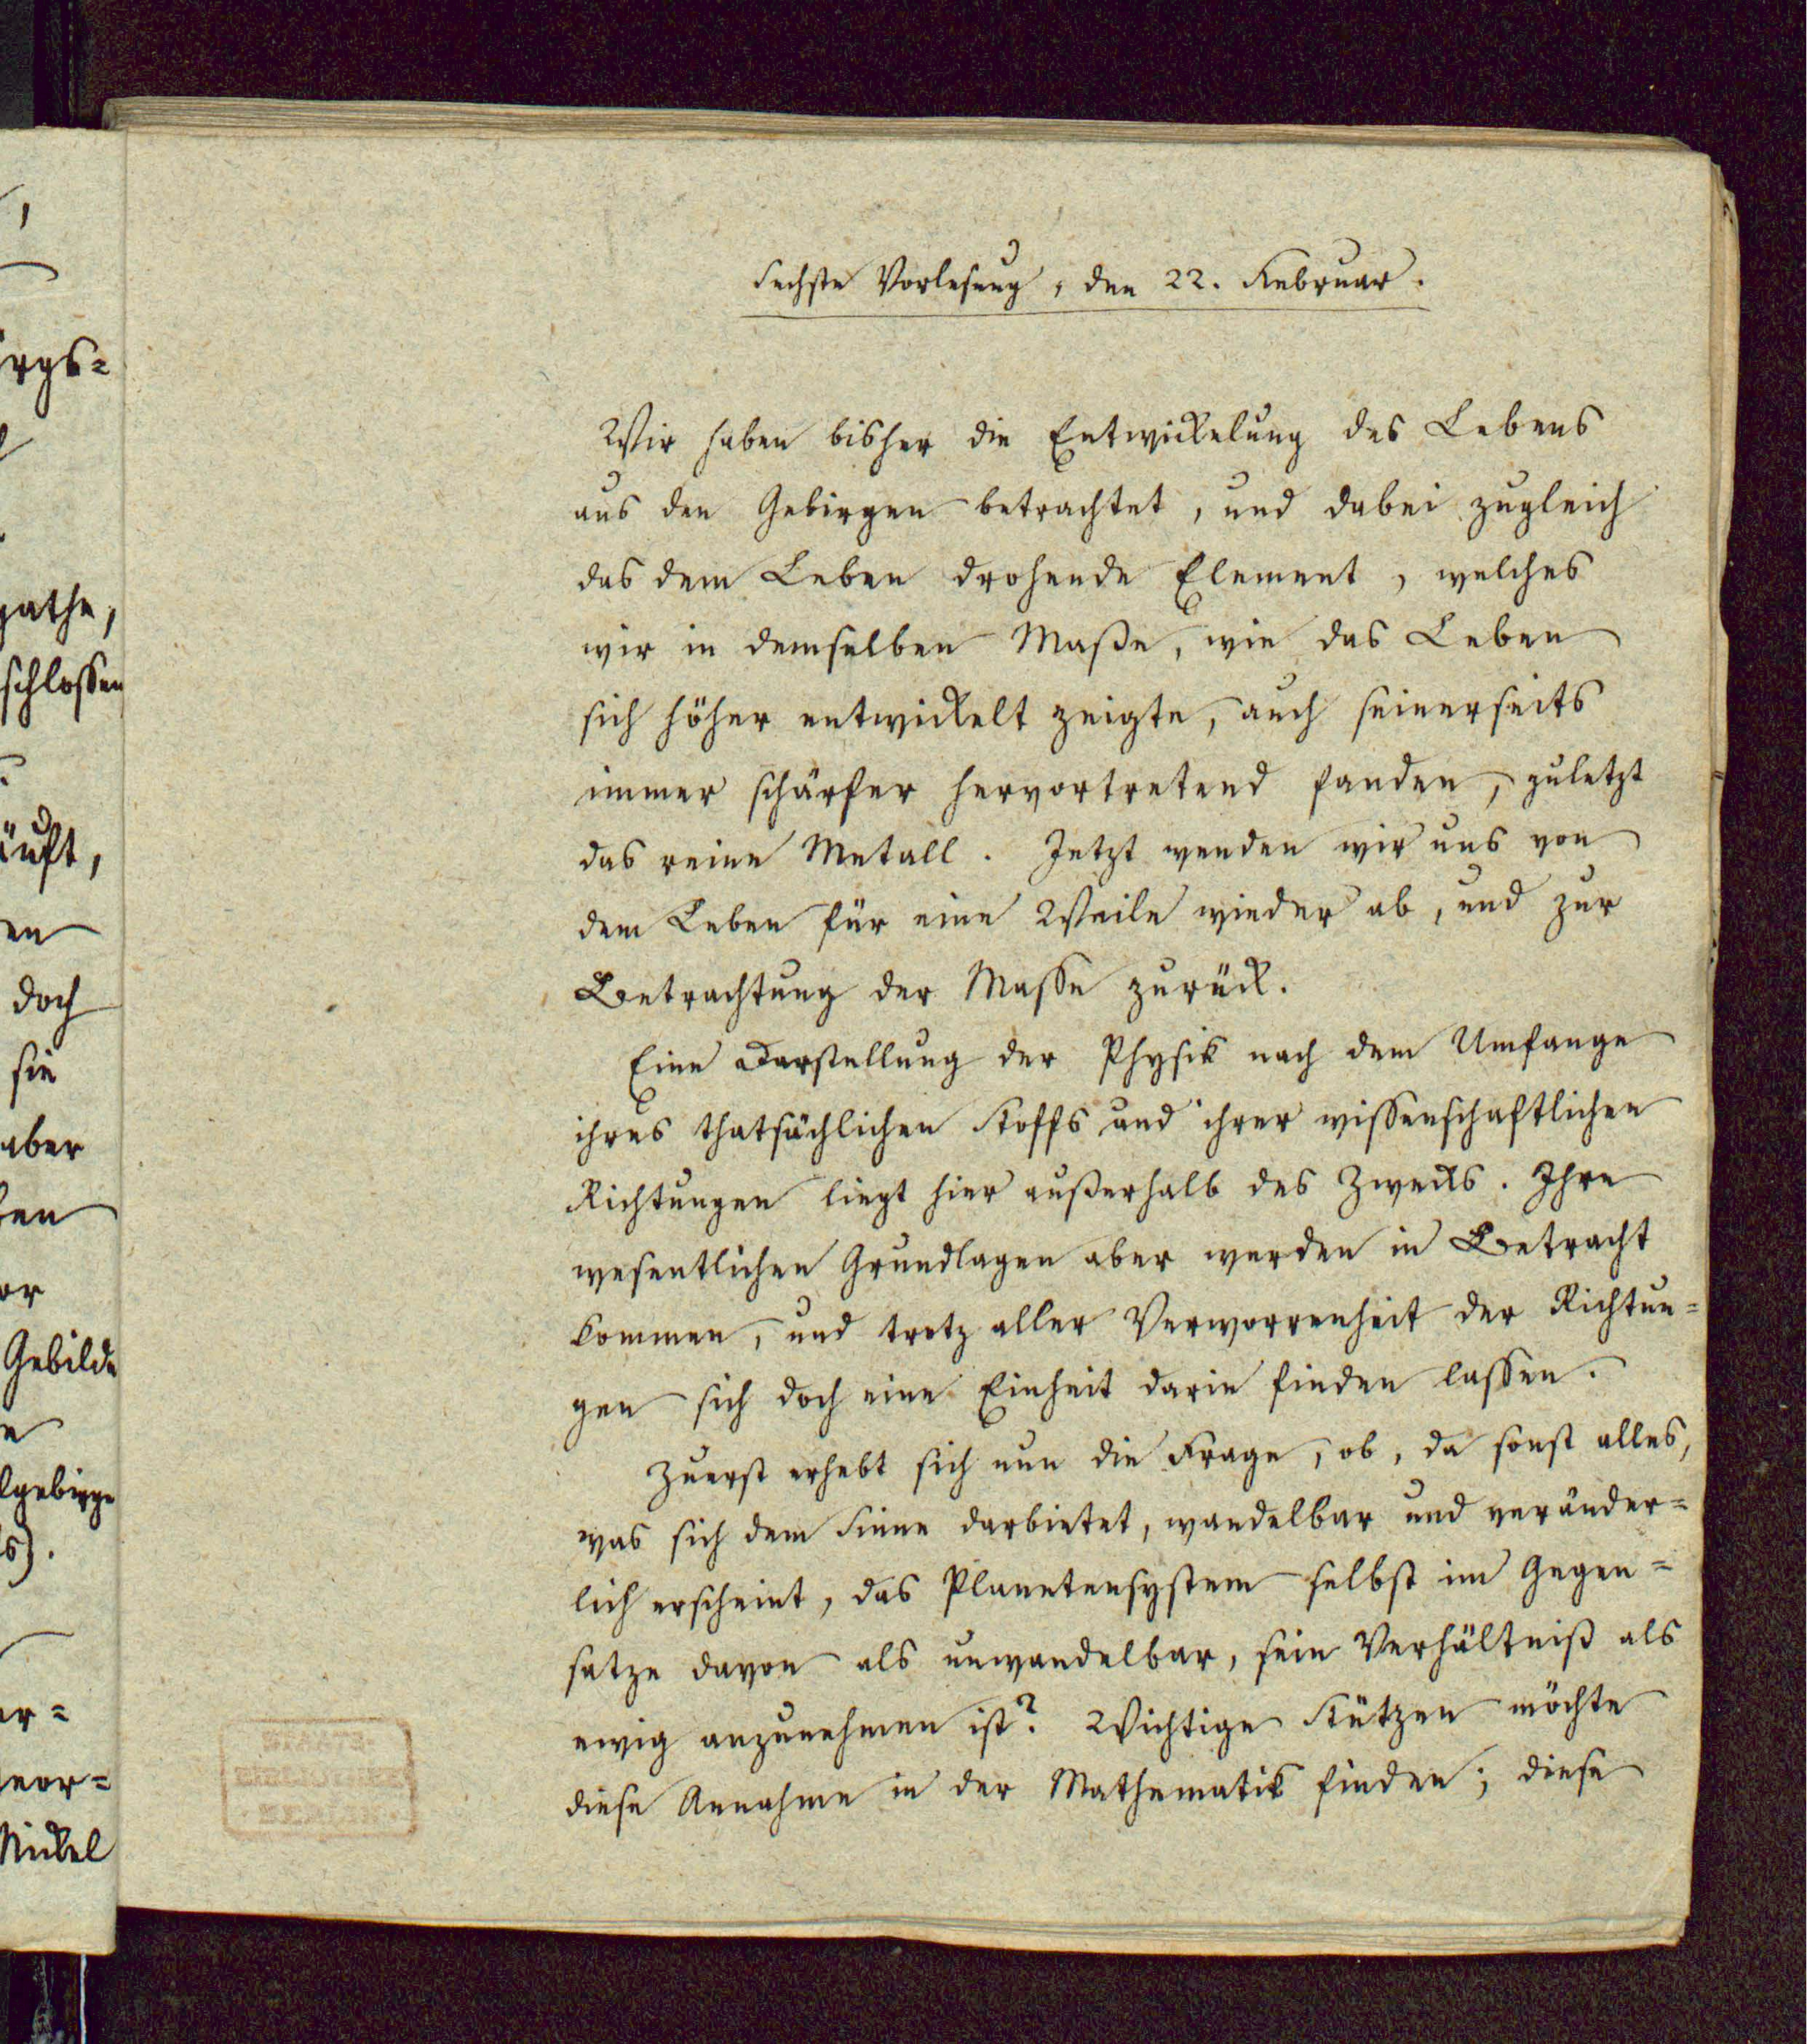 Sechste Vorlesung, den 22. Februar.
Wir haben bisher die Entwickelung des Lebens
aus den Gebirgen betrachtet, und dabei zugleich
das dem Leben drohende Element, welches
wir in demselben Maße, wie das Leben
sich höher entwickelt zeigte, auch seinerseits
immer schärfer hervortretend fanden, zuletzt
das reine Metall. Jetzt wenden wir uns von
dem Leben für eine Weile wieder ab, und zur
Betrachtung der Masse zurück.
Eine Darstellung der Physik nach dem Umfange
ihres thatsächlichen Stoffs und ihrer wissenschaftlichen
Richtungen liegt hier außerhalb des Zwecks. Ihre
wesentlichen Grundlagen aber werden in Betracht
kommen, und trotz aller Verworrenheit der Richtun=
gen sich doch eine Einheit darin finden lassen.
Zuerst erhebt sich nun die Frage, ob, da sonst alles,
was sich dem Sinne darbietet, wandelbar und veränder=
lich erscheint, das Planetensystem selbst im Gegen=
satze davon als unwandelbar, sein Verhältniß als
ewig anzunehmen ist? Wichtige Stützen möchte
diese Annahme in der Mathematik finden; diese
irgs=
pathe,
schlossen
äuft,
en
doch
sie
aber
ben
or
Gebilde
lgebirge
er=
Nickel